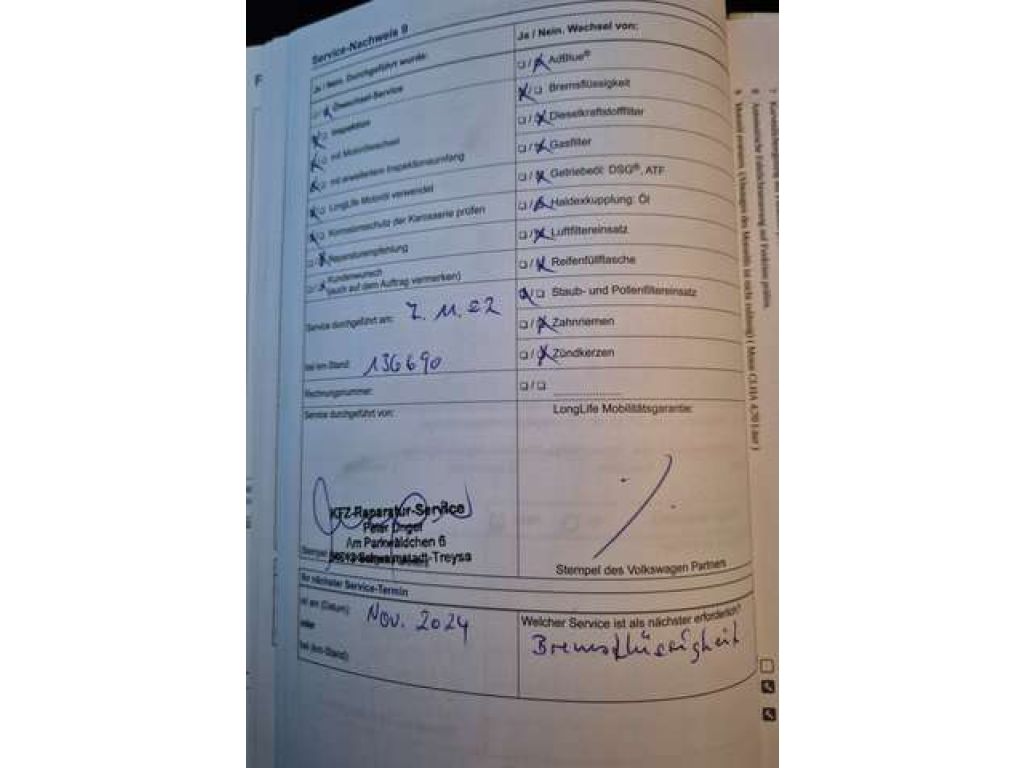 Service-Nachweis 9
Ja / Nein. Durchgeführt wurde:
Ölwechsel-Service
Inspektion
mit Motorölwechsel
mit erweitertem Inspektionsumfang
LongLife Motoröl verwendet
Korrosionsschutz der Karosserie prüfen
Reparaturempfehlung
Kundenwunsch
(auch auf dem Auftrag vermerken)
Service durchgeführt am: 7. 11. 22
bei km-Stand: 136690
Rechnungsnummer:
Service durchgeführt von:
KFZ-Reparatur-Service
Peter
Am Parkwäldchen 6
Schwalmstadt-Treysa
Stempel
Ja / Nein. Wechsel von:
AdBlue®
Bremsflüssigkeit
Dieselkraftstofffilter
Gasfilter
Getriebeöl: DSG®, ATF
Haldexkupplung: Öl
Luftfiltereinsatz
Reifenfüllflasche
Staub- und Pollenfiltereinsatz
Zahnriemen
Zündkerzen
LongLife Mobilitätsgarantie:
Stempel des Volkswagen Partners
Ihr nächster Service-Termin
ist am (Datum): Nov. 2024
oder
bei (km-Stand):
Welcher Service ist als nächster erforderlich?
Bremsflüssigkeit
F